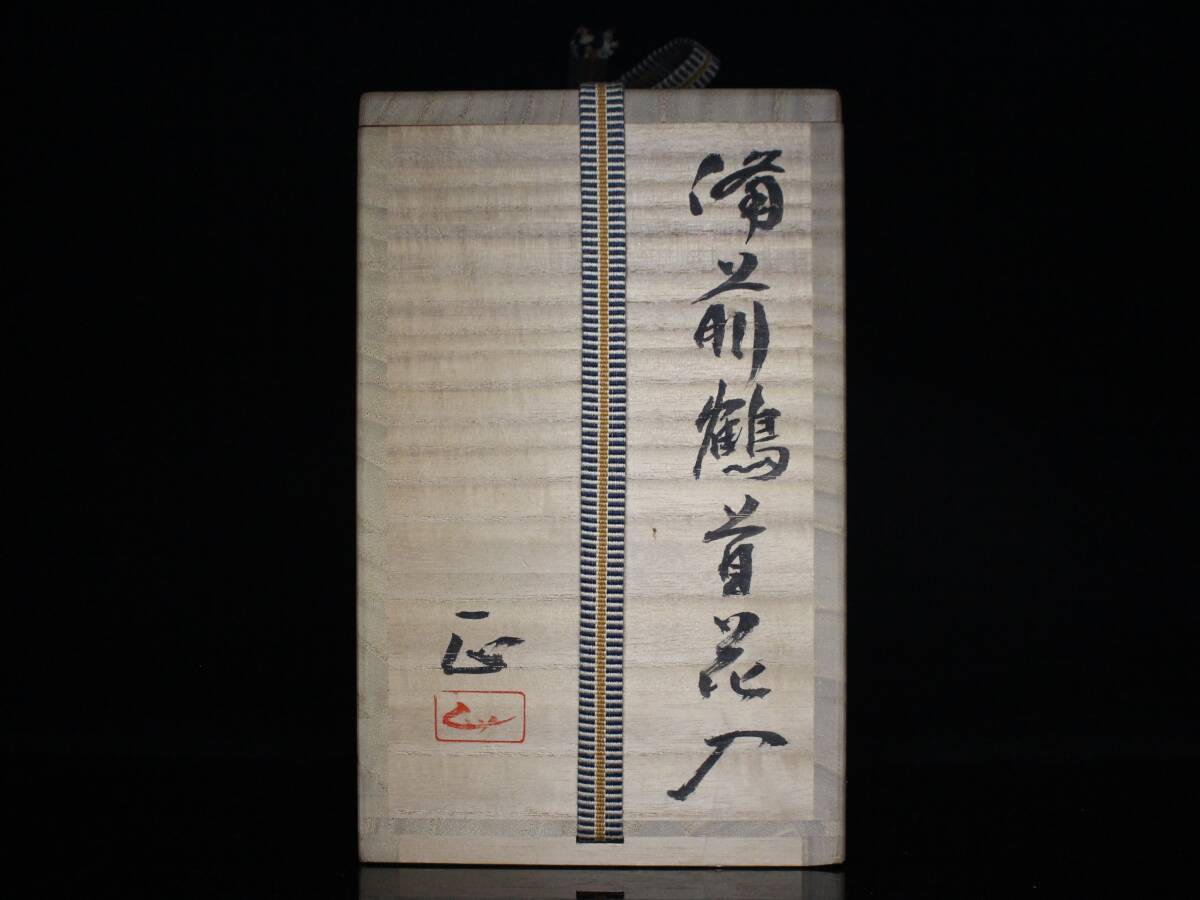 備前鶴首花入
一正